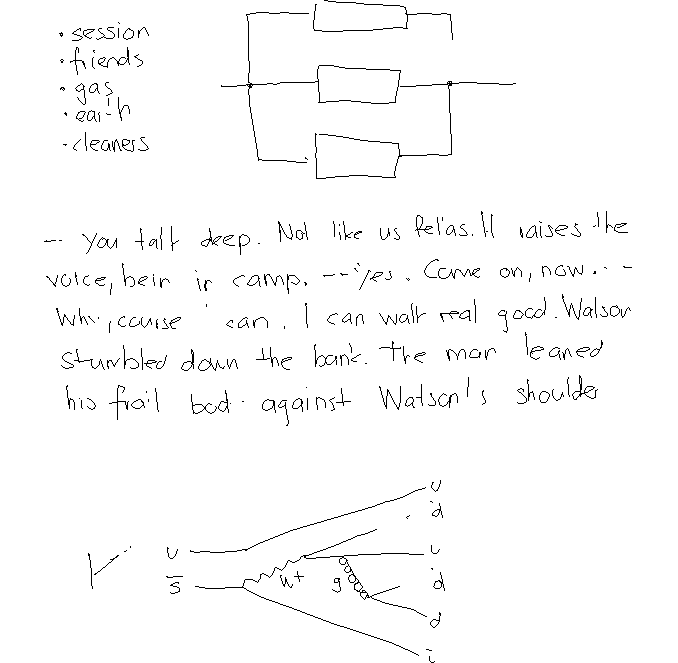 • session
• friends
• gas
• earth
• cleaners
-- You talk deep. Not like us fellas. It raises the
voice, bein in camp. --- Yes. Come on, now. --
Why, course I can. I can walk real good. Watson
stumbled down the bank. The man leaned
his frail body against Watson's shoulder
u
d
u
u
s
W+
g
d
d